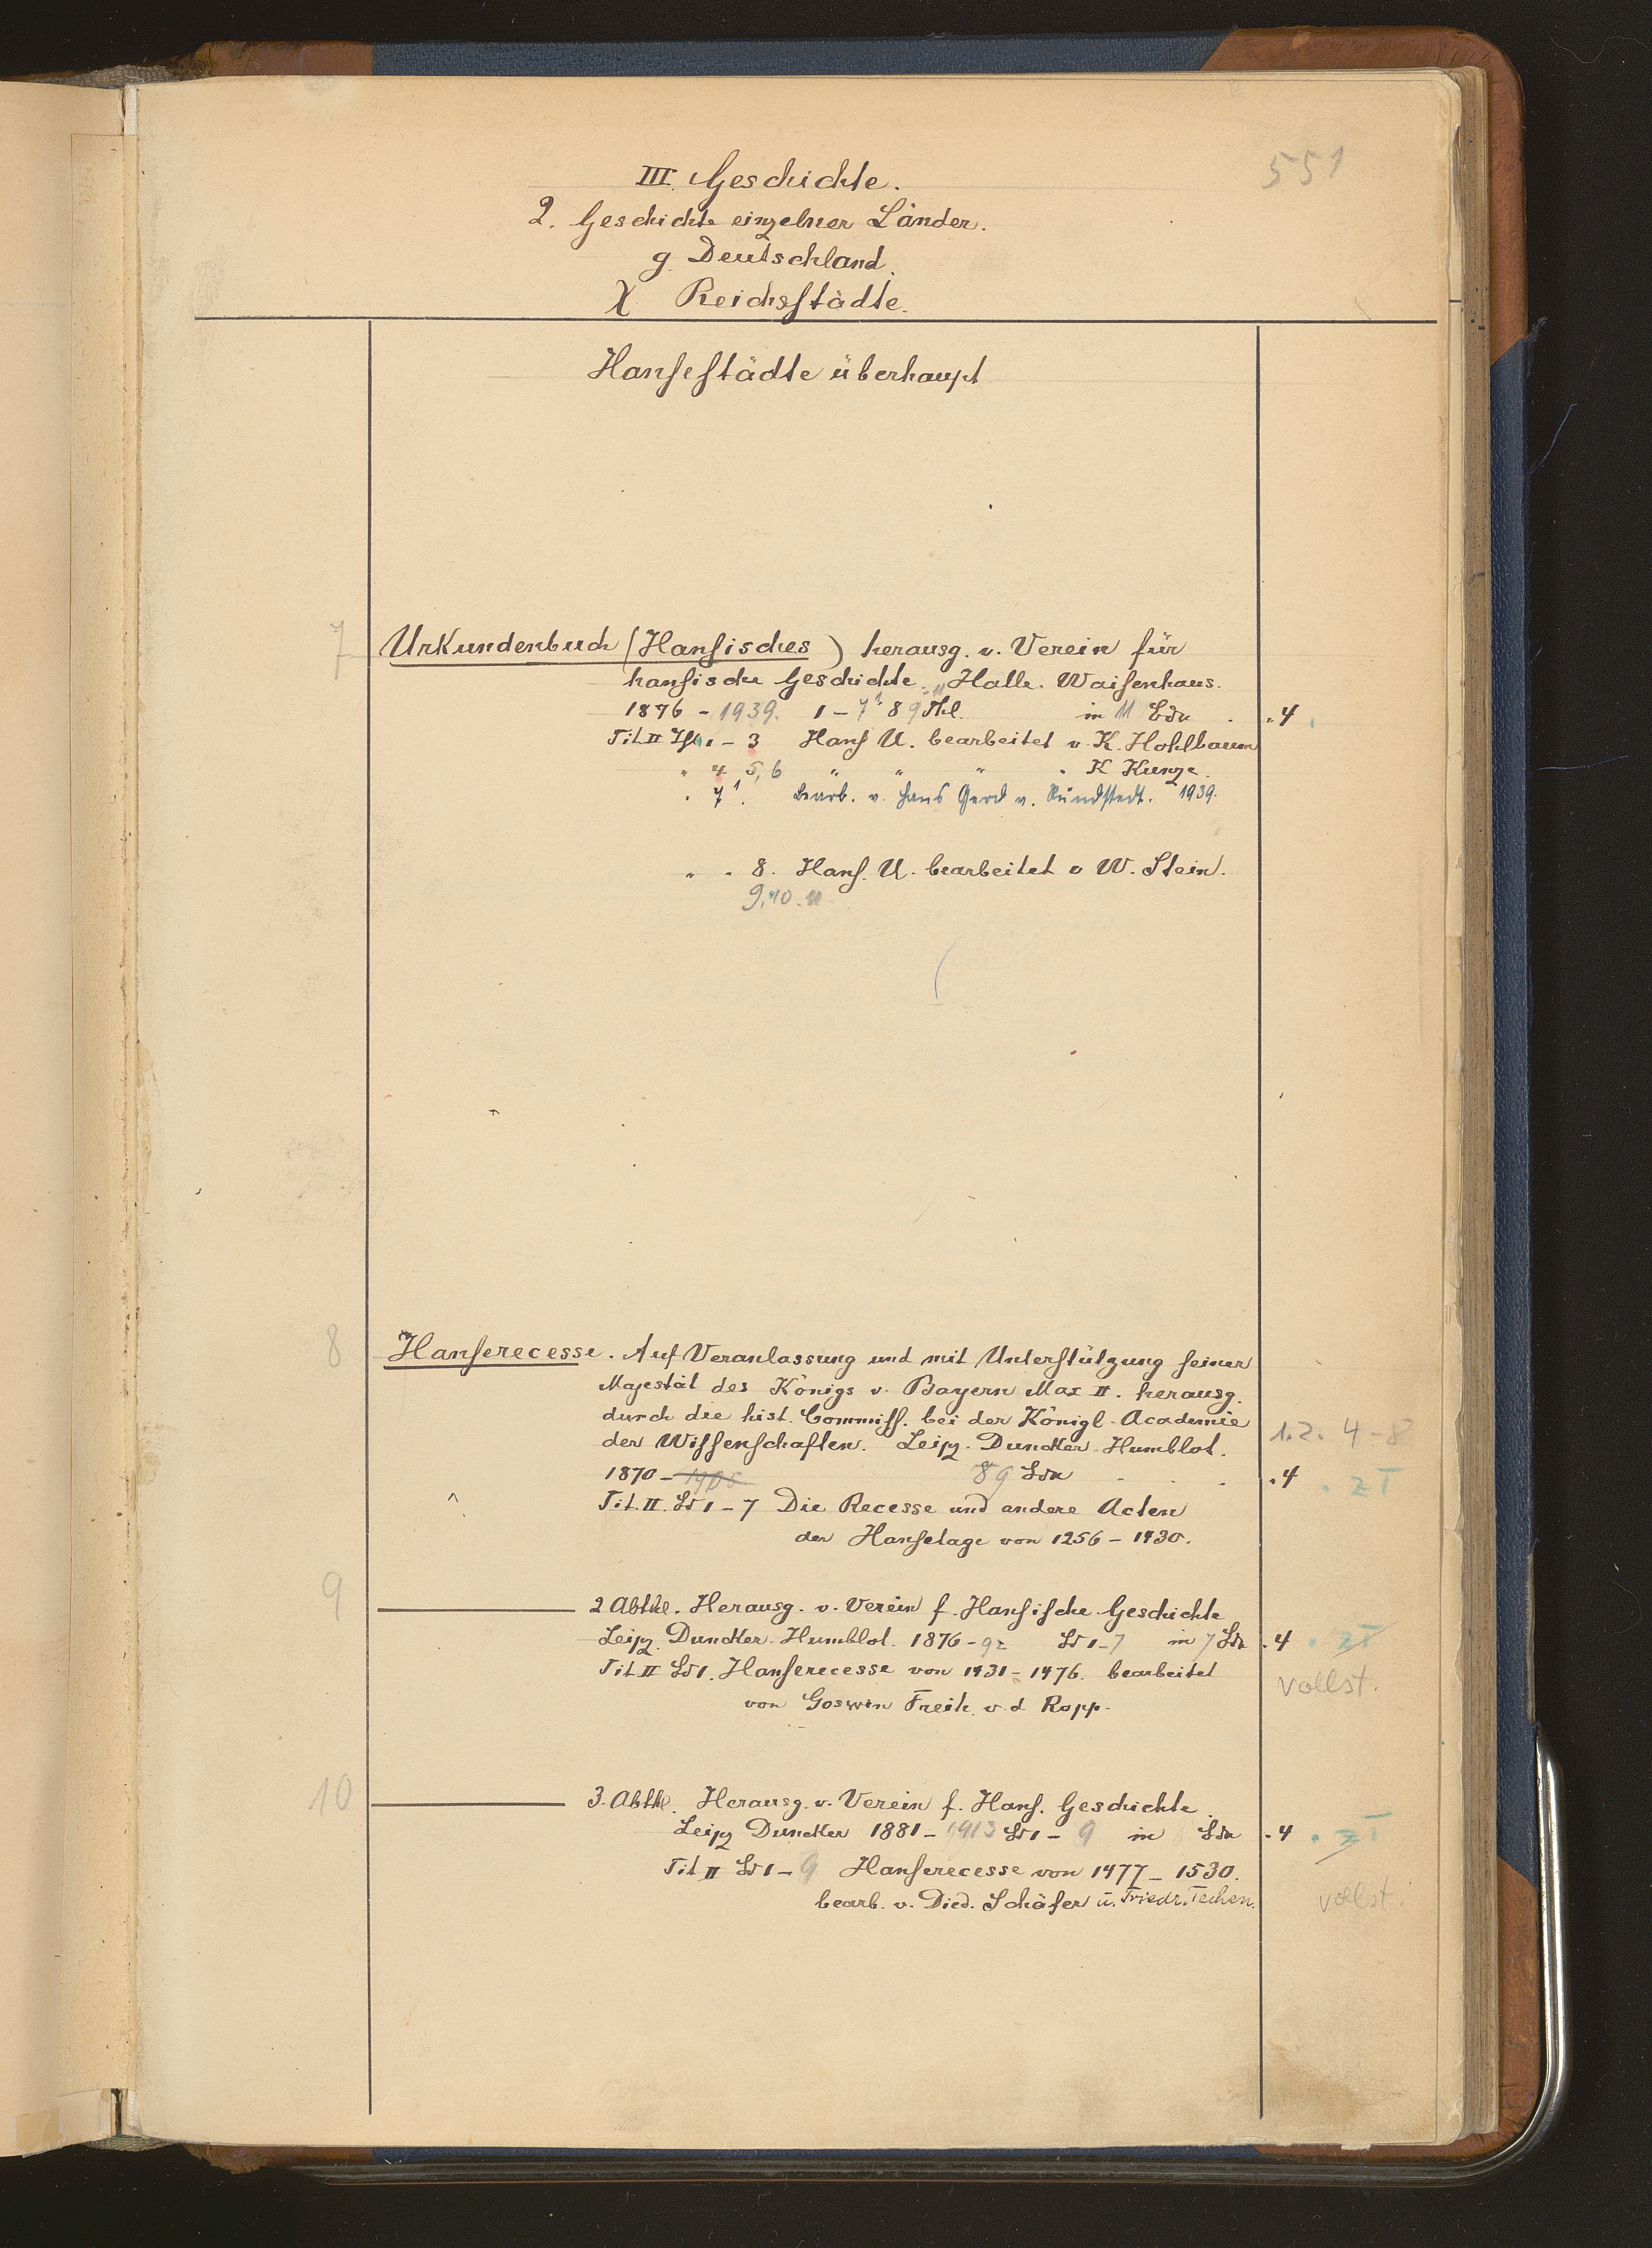 551
III. Geschichte.
2. Geschichte einzelner Länder.
g. Deutschland.
χ Reichsstädte.
Hansestädte überhaupt
7 Urkundenbuch (Hansisches) herausg. v. Verein für
hansische Geschichte. Halle. Waisenhaus.
1876 - 1939. 1 - 7¹ 8 9 Thl. in 11 Bdn . . 4
Tit. II Th 1 - 3 Hans U. bearbeitet v. K. Hohlbaum
" 4 5, 6 " " " " K Kunze.
" 7¹. bearb. v. Hans Gerd v. Rundstedt. 1939.
" " 8. Hans. U. bearbeitet v W. Stein.
9. 10. 11
8 Hanserecesse. Auf Veranlassung und mit Unterstützung seiner
Majestät des Königs v. Bayern Max II. herausg.
durch die hist. Commiss. bei der Königl. Academie
der Wissenschaften. Leipz. Duncker-Humblot. 1. 2. 4-8
1870 - 8 9 Bdn . . . 4 . zT
Tit. II. Bd 1 - 7 Die Recesse und andere Acten
der Hansetage von 1256 - 1430.
9 2 Abthl. Herausg. v. Verein f. Hansische Geschichte
Leipz. Duncker-Humblot. 1876 - 92 Bd 1-7 in 7 Bdn . 4 . zT
Tit II Bd 1. Hanserecesse von 1431 - 1476. bearbeitet vollst.
von Goswin Freih. v. d Ropp.
10 3. Abthl. Herausg. v. Verein f. Hans. Geschichte.
Leipz Duncker 1881 - 1913 Bd 1 - 9 in Bdn . 4 . zT
Tit II Bd 1 - 9 Hanserecesse von 1477 - 1530.
bearb. v. Died. Schäfer u. Friedr. Techen. vollst.